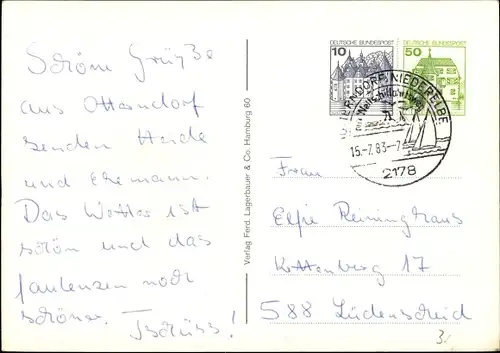 Schöne Grüße
aus Otterndorf
senden Heide
und Ehemann.
Das Wetter ist
schön und das
faulenzen noch
schöner. Tschüss!
Verlag Ferd. Lagerbauer & Co. Hamburg 60
10 DEUTSCHE BUNDESPOST
DEUTSCHE BUNDESPOST 50
OTTERNDORF, NIEDERELBE
15.-7.83.-7
2178
Frau
Elfie Reininghaus
Kottenberg 17
588 Lüdenscheid
3.